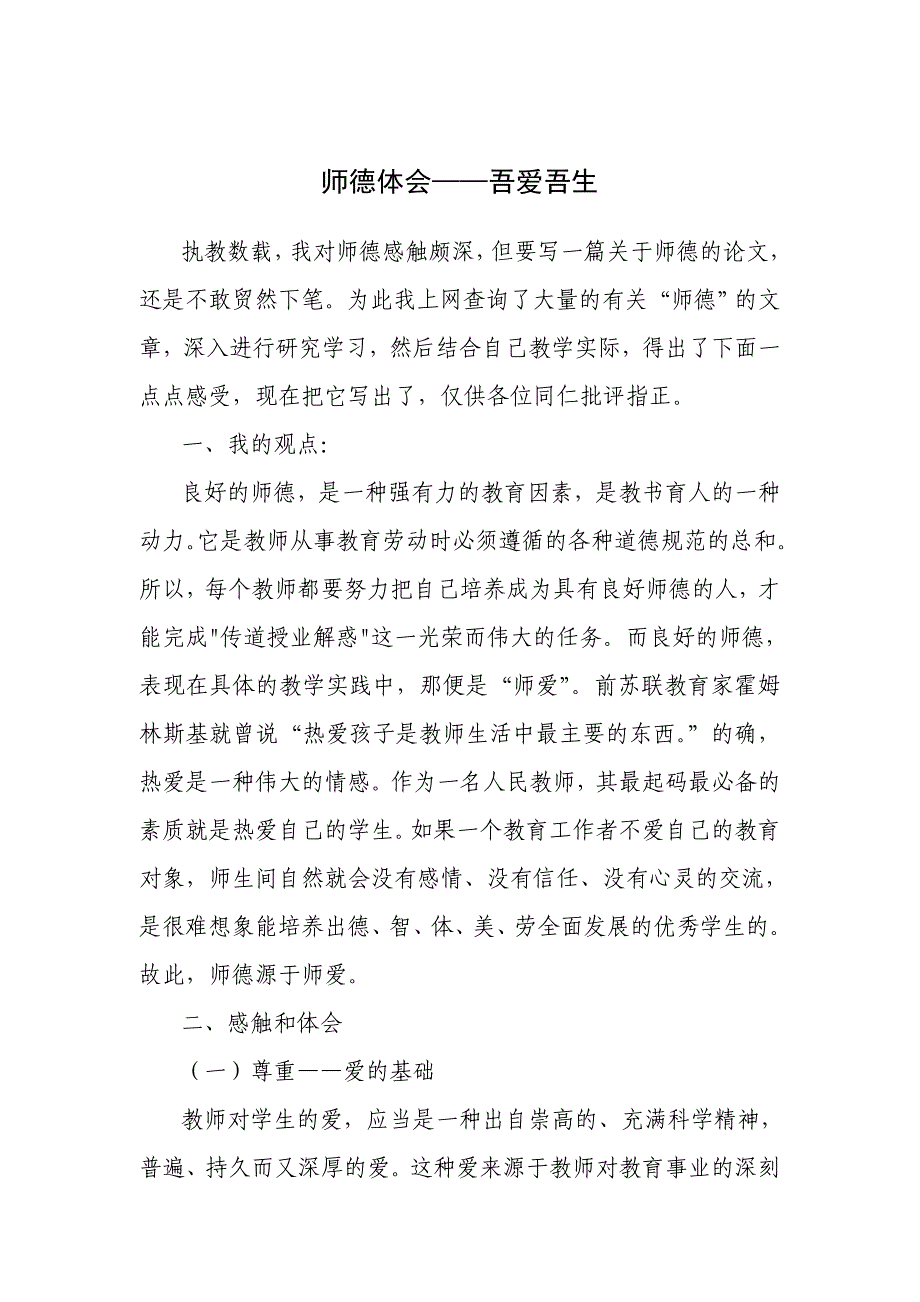 师德体会——吾爱吾生
执教数载，我对师德感触颇深，但要写一篇关于师德的论文，
还是不敢贸然下笔。为此我上网查询了大量的有关“师德”的文
章，深入进行研究学习，然后结合自己教学实际，得出了下面一
点点感受，现在把它写出了，仅供各位同仁批评指正。
一、我的观点：
良好的师德，是一种强有力的教育因素，是教书育人的一种
动力。它是教师从事教育劳动时必须遵循的各种道德规范的总和。
所以，每个教师都要努力把自己培养成为具有良好师德的人，才
能完成"传道授业解惑"这一光荣而伟大的任务。而良好的师德，
表现在具体的教学实践中，那便是“师爱”。前苏联教育家霍姆
林斯基就曾说“热爱孩子是教师生活中最主要的东西。”的确，
热爱是一种伟大的情感。作为一名人民教师，其最起码最必备的
素质就是热爱自己的学生。如果一个教育工作者不爱自己的教育
对象，师生间自然就会没有感情、没有信任、没有心灵的交流，
是很难想象能培养出德、智、体、美、劳全面发展的优秀学生的。
故此，师德源于师爱。
二、感触和体会
（一）尊重——爱的基础
教师对学生的爱，应当是一种出自崇高的、充满科学精神，
普遍、持久而又深厚的爱。这种爱来源于教师对教育事业的深刻